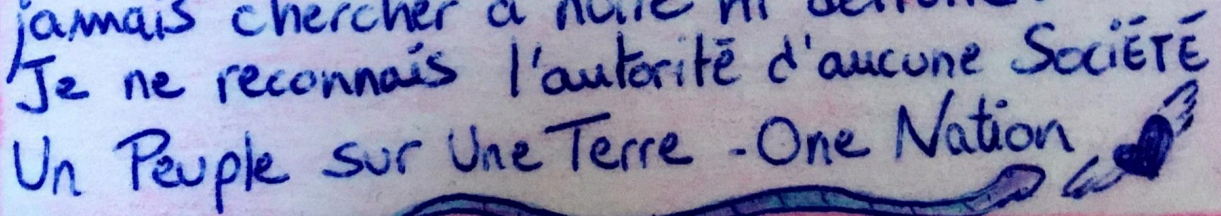 jamais chercher à nuire ni
Je ne reconnais l'autorité d'aucune SociÉTÉ
Un Peuple sur Une Terre - One Nation